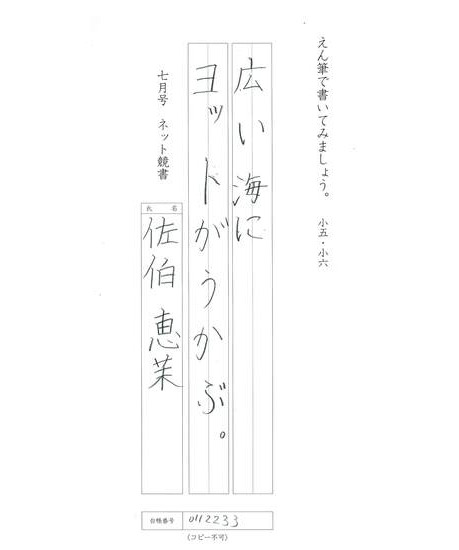 えん筆で書いてみましょう。 小五・小六
広い海に
ヨットがうかぶ。
七月号 ネット競書
氏名
佐伯 恵茉
台帳番号 0112233
(コピー不可)